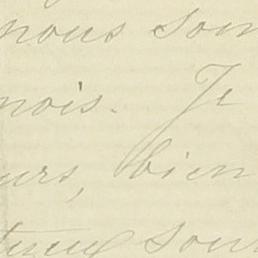 nous son
mois. Je
urs, bien
sont